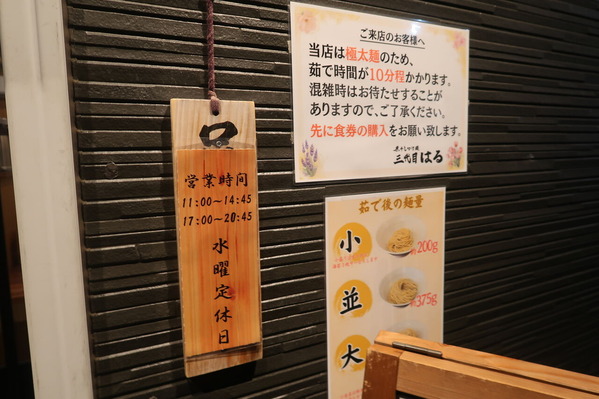 営業時間
11:00〜14:45
17:00〜20:45
水曜定休日
ご来店のお客様へ
当店は極太麺のため、
茹で時間が10分程かかります。
混雑時はお待たせすることが
ありますので、ご了承ください。
先に食券の購入をお願い致します。
煮干しつけ麺
三代目はる
茹で後の麺量
小
200g
並
375g
大